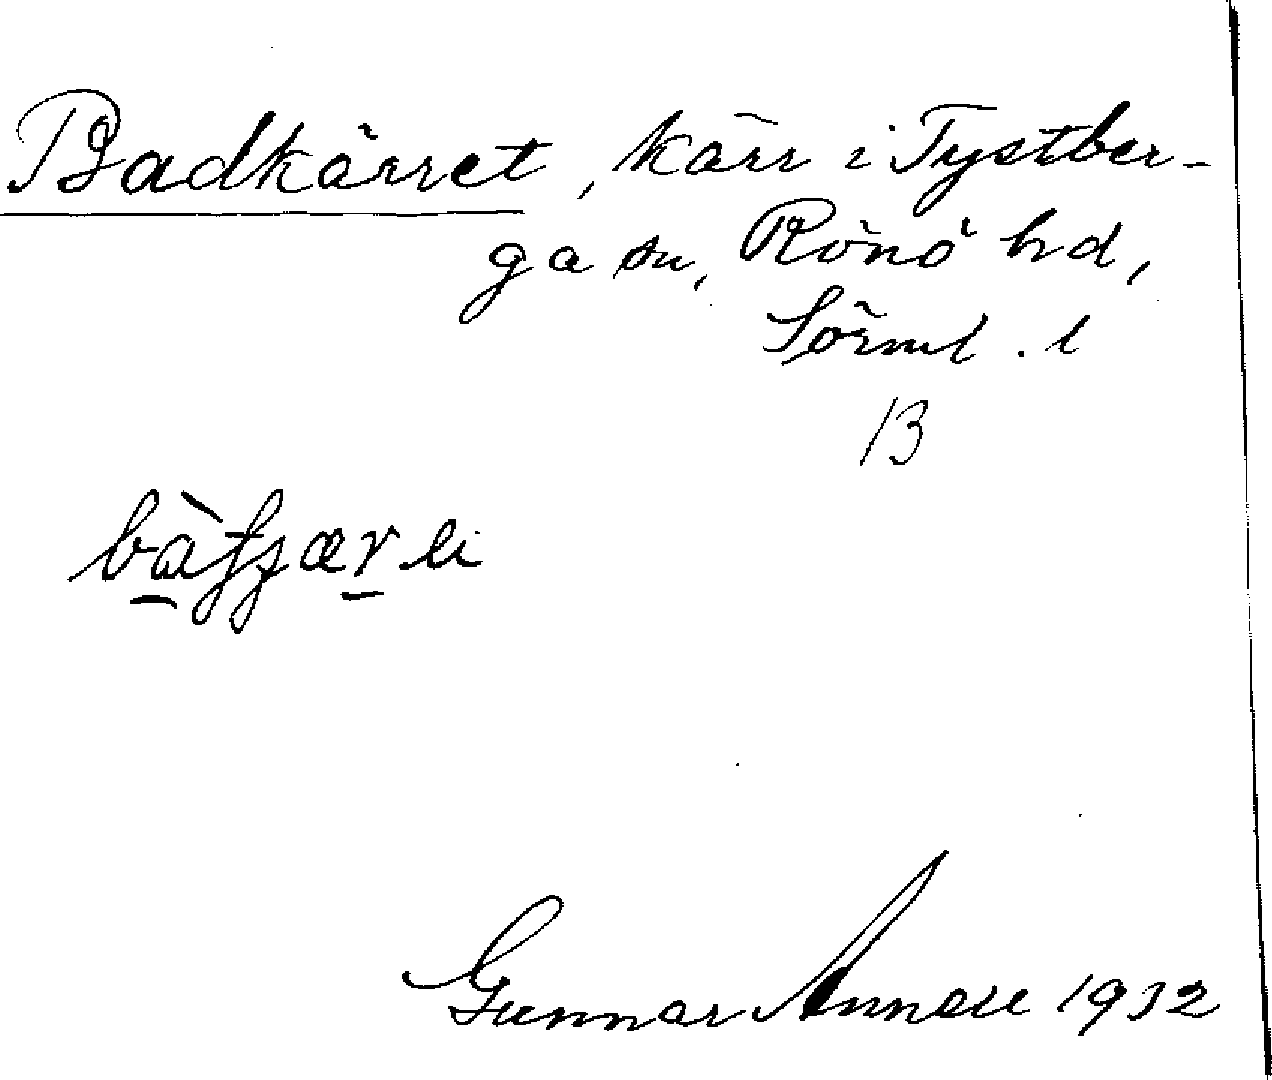 Badkärret, kärr i Tystber-
ga sn, Rönö hd,
Sörml. l
13
Gunnar Annell 1932